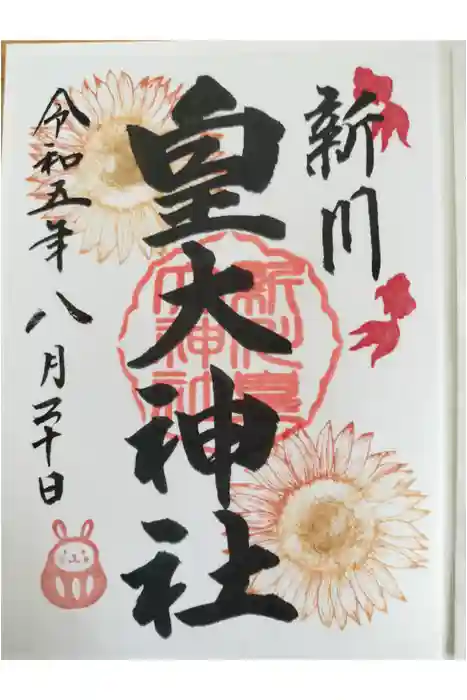 新川
皇大神社
令和五年八月二十日
新川皇
大神社